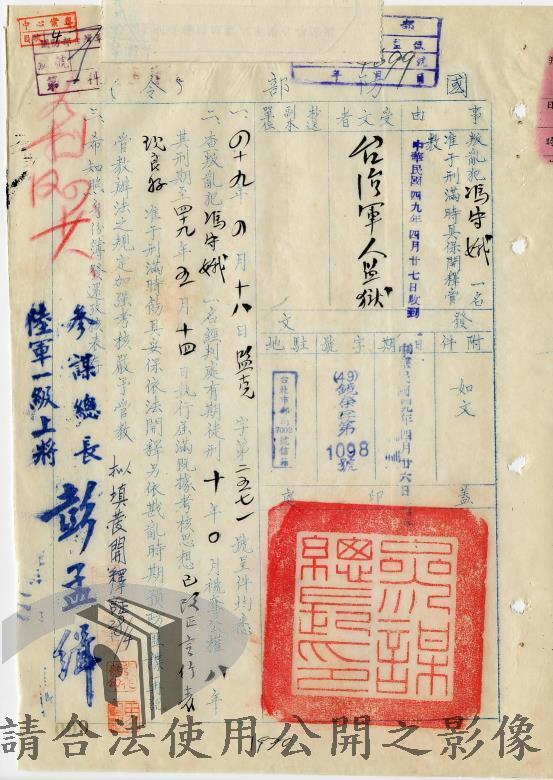 國防部令
事由
叛亂犯馮守娥一名准于刑滿時具保開釋管教
受文者
台灣軍人監獄
抄送副本單位
中華民國四九年四月廿七日收到
發文
附件
如文
日期
中華民國四九年四月廿六日
字號
(49)
第1098號
駐地
台北市郵政7002號信箱
蓋印
參謀總長印
一、四十九年四月十八日監克字第二五七一號呈件均悉
二、查叛亂犯馮守娥一名經判處有期徒刑十年〇月褫奪公權八年
其刑期至四十九年五月十四日執行屆滿既據考核思想已改正言行表
現良好准于刑滿時飭具妥保依法開釋另依戡亂時期預防匪諜再犯
管教辦法之規定加強考核嚴予管教
三、希知照
參謀總長
陸軍一級上將
彭孟緝
擬填發開釋證明
請合法使用公開之影像